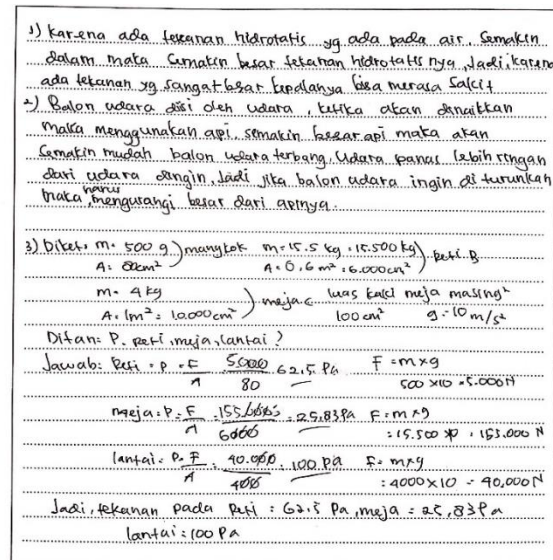 1) Karena ada tekanan hidrotatis yg ada pada air. Semakin
dalam maka semakin besar tekanan hidrotatis nya, Jadi, karena
ada tekanan yg sangat besar kepalanya bisa merasa sakit
2) Balon udara diisi oleh udara, ketika akan dinaikkan
maka menggunakan api, semakin besar api maka akan
semakin mudah balon udara terbang, Udara panas lebih ringan
dari udara dingin, Jadi jika balon udara ingin di turunkan
maka harus mengurangi besar dari apinya.
3) Diket: m = 500 g ) mangkok m = 15.5 kg = 15.500 kg ) Peti. B
A = 80cm² A = 0,6 m² = 6.000cm²
m = 4 kg ) meja c luas kaki meja masing²
A = 1m² = 10.000cm² 100 cm² g = 10 m/s²
Ditan: P. Peti, meja, lantai ?
Jawab: Peti = P = F/A = 5000/80 = 62.5 Pa F = m x g
500 x 10 = 5.000 N
meja = P = F/A = 155.000/6000 = 25,83 Pa F = m x g
= 15.500 x 10 = 155.000 N
lantai = P = F/A = 40.000/400 = 100 Pa F = m x g
= 4000 x 10 = 40.000 N
Jadi, tekanan pada Peti = 62,5 Pa, meja = 25,83 Pa
lantai = 100 Pa